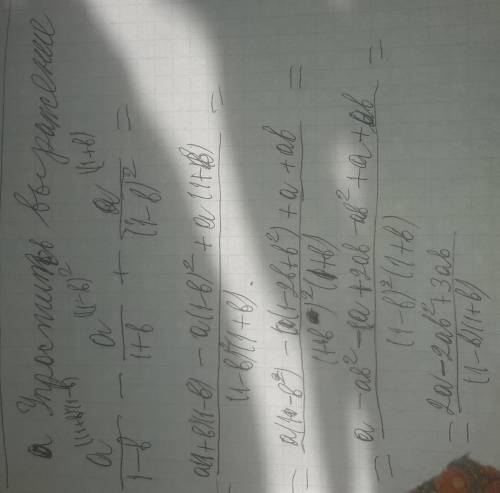 а Упростить выражение
a^((1+b)(1-b))/(1-b) - a^((1-b)^2)/(1+b) + a^((1+b))/(1-b)^2 =
a(1+b)(1-b) - a(1-b)^2 + a(1+b) / (1-b)^2(1+b) =
= a(1-b^2) - a(1-2b+b^2) + a + ab / (1+b)^2(1+b) =
= a - ab^2 - a + 2ab - ab^2 + a + ab / (1-b)^2(1+b) =
= 2a - 2ab^2 + 3ab / (1-b)(1+b)